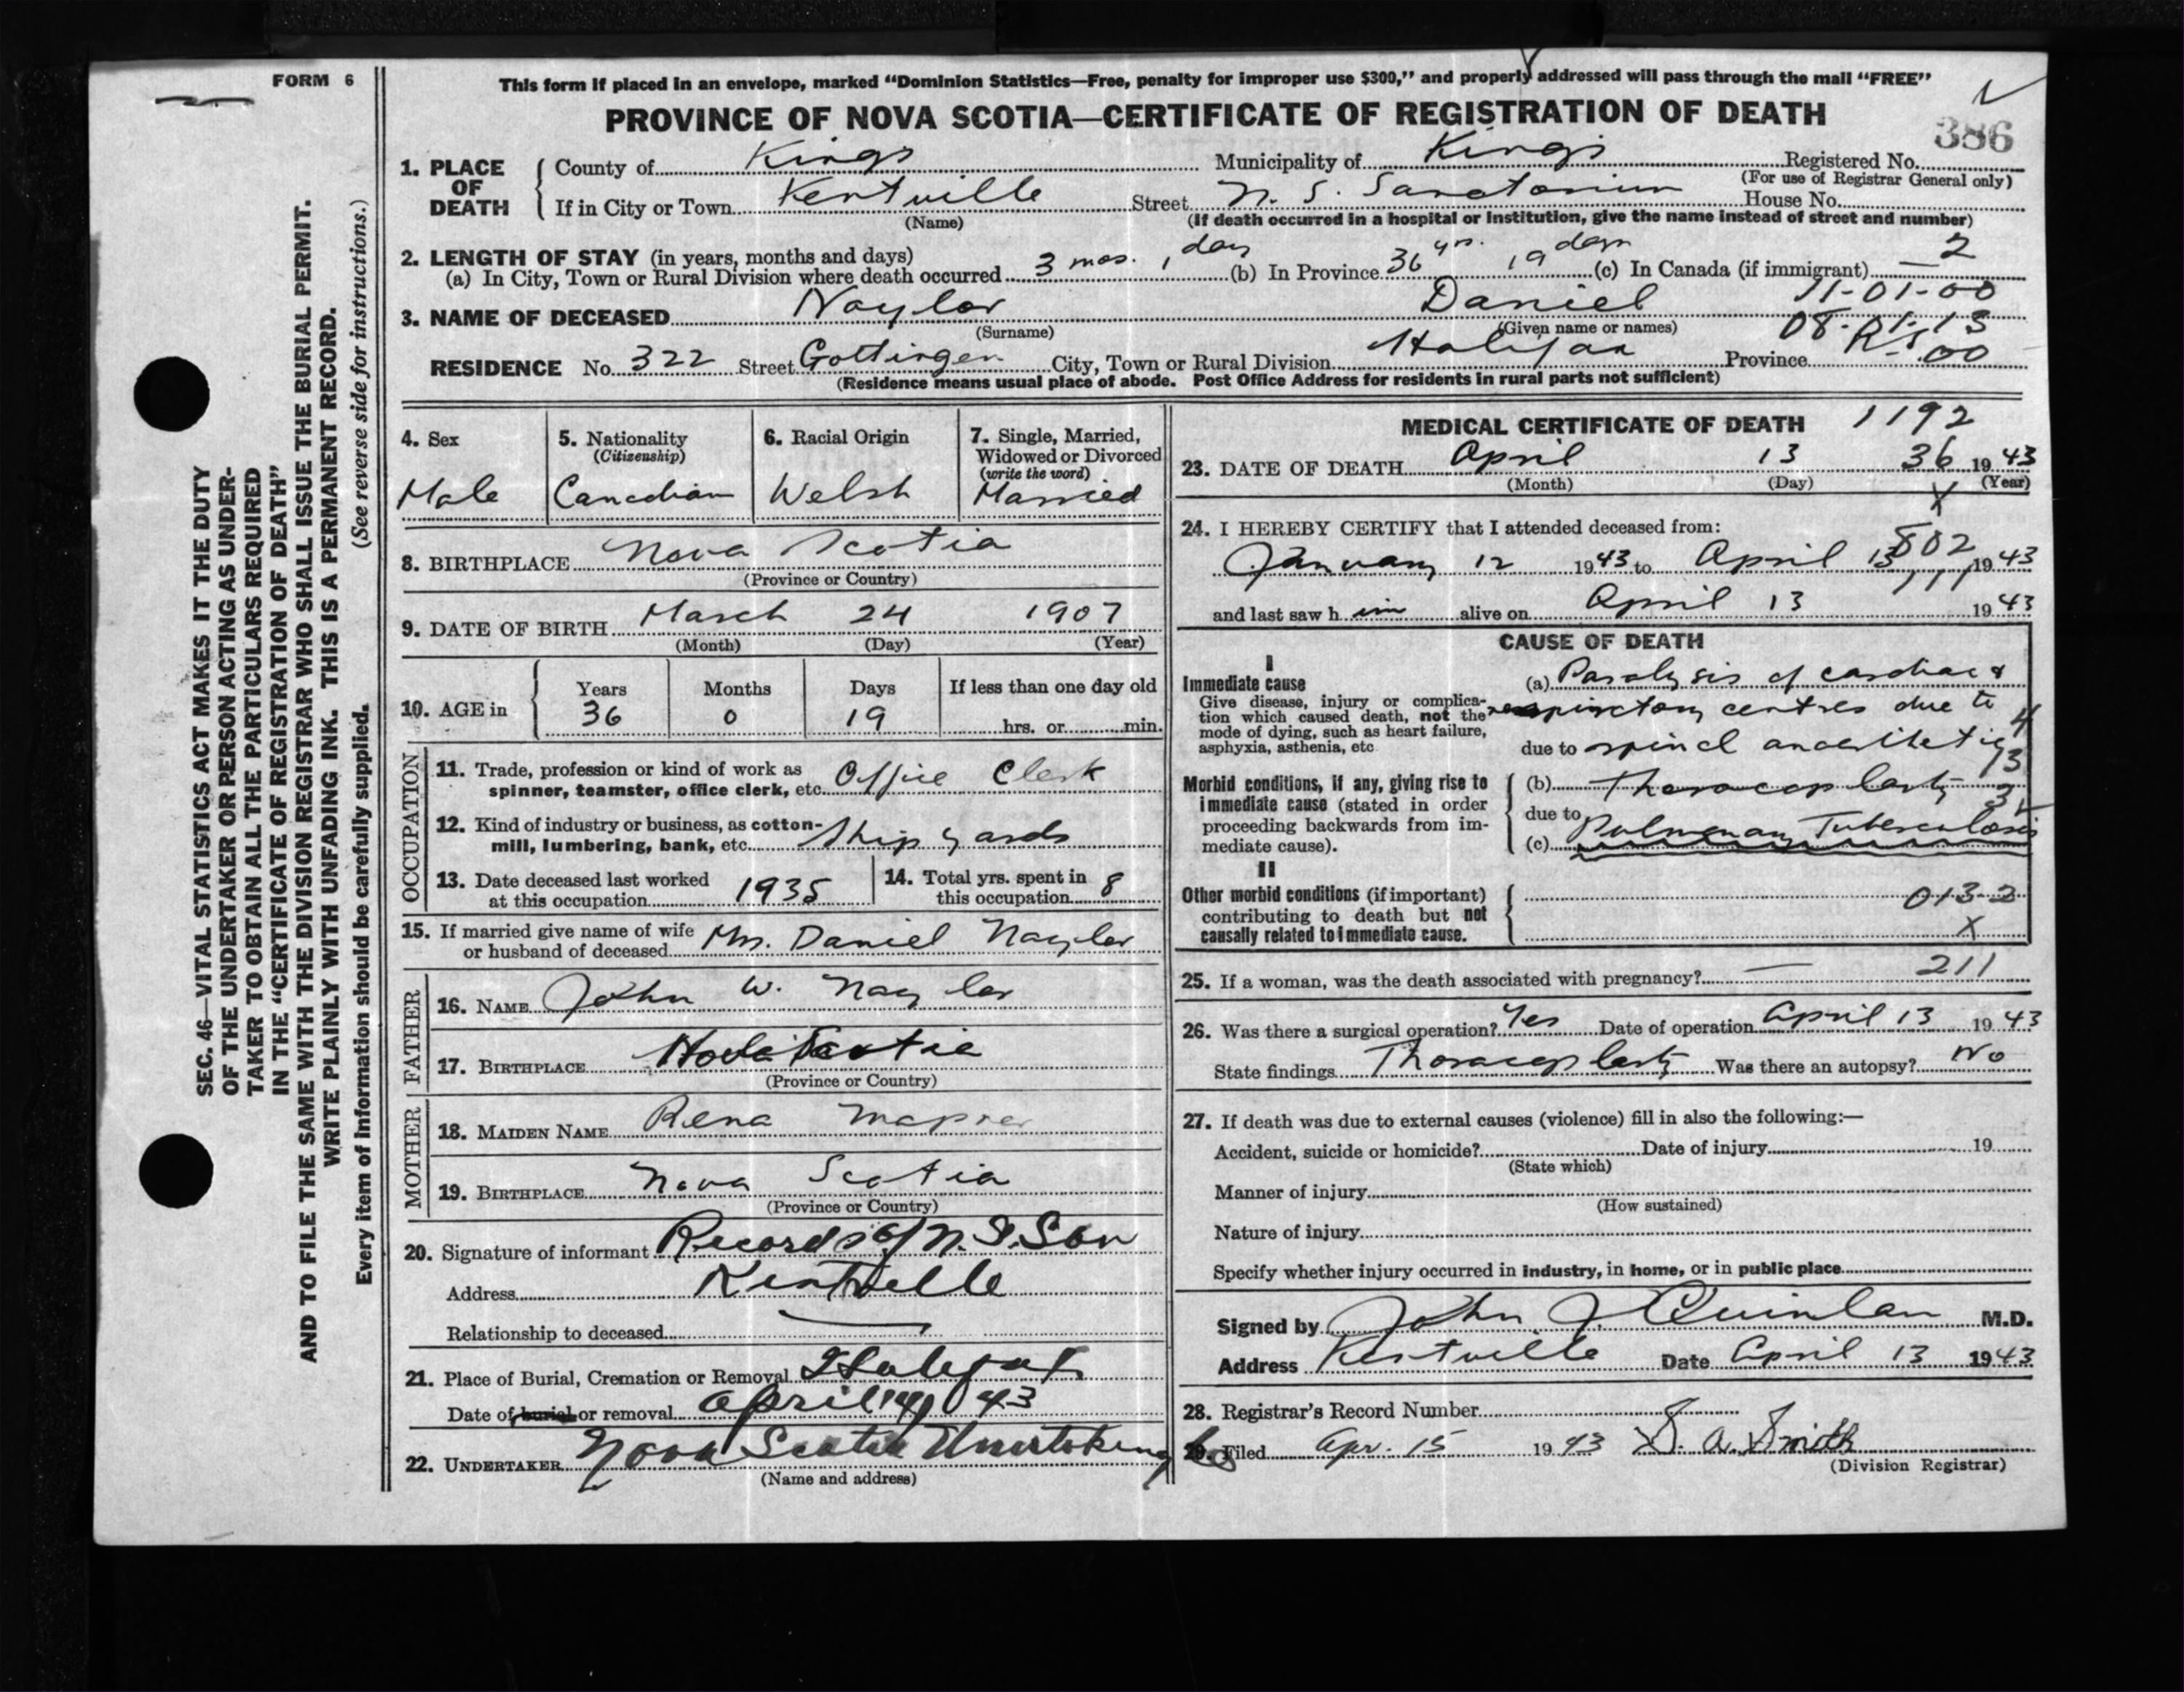 FORM 6
This form if placed in an envelope, marked “Dominion Statistics—Free, penalty for improper use $300,” and properly addressed will pass through the mail “FREE”
PROVINCE OF NOVA SCOTIA—CERTIFICATE OF REGISTRATION OF DEATH
386
1. PLACE OF DEATH
County of Kings Municipality of Kings Registered No.
(For use of Registrar General only)
If in City or Town Kentville Street N. S. Sanatorium House No.
(Name) (If death occurred in a hospital or institution, give the name instead of street and number)
2. LENGTH OF STAY (in years, months and days)
(a) In City, Town or Rural Division where death occurred 3 mos. 1 day (b) In Province 36 yrs. 19 days (c) In Canada (if immigrant) — 2
11-01-00
3. NAME OF DECEASED Naylor Daniel
(Surname) (Given name or names) 08-01-13
RESIDENCE No. 322 Street Gottingen City, Town or Rural Division Halifax Province 00
(Residence means usual place of abode. Post Office Address for residents in rural parts not sufficient)
4. Sex
Male
5. Nationality
(Citizenship)
Canadian
6. Racial Origin
Welsh
7. Single, Married,
Widowed or Divorced
(write the word)
Married
8. BIRTHPLACE Nova Scotia
(Province or Country)
9. DATE OF BIRTH March 24 1907
(Month) (Day) (Year)
10. AGE in
Years Months Days If less than one day old
36 0 19 hrs. or min.
OCCUPATION
11. Trade, profession or kind of work as
spinner, teamster, office clerk, etc. Office Clerk
12. Kind of industry or business, as cotton-
mill, lumbering, bank, etc. Ship yards
13. Date deceased last worked
at this occupation 1935
14. Total yrs. spent in
this occupation 8
15. If married give name of wife
or husband of deceased Mrs. Daniel Naylor
FATHER
16. NAME John W. Naylor
17. BIRTHPLACE Nova Scotia
(Province or Country)
MOTHER
18. MAIDEN NAME Rena
19. BIRTHPLACE Nova Scotia
(Province or Country)
20. Signature of informant Records of N. S. San
Address Kentville
Relationship to deceased
21. Place of Burial, Cremation or Removal Halifax
Date of burial or removal April 14 43
22. UNDERTAKER Nova Scotia Undertaking Co
(Name and address)
MEDICAL CERTIFICATE OF DEATH 1192
23. DATE OF DEATH April 13 36 1943
(Month) (Day) (Year)
X
24. I HEREBY CERTIFY that I attended deceased from:
802
January 12 1943 to April 13 1943
111
and last saw him alive on April 13 1943
CAUSE OF DEATH
I
Immediate cause
Give disease, injury or complica-
tion which caused death, not the
mode of dying, such as heart failure,
asphyxia, asthenia, etc
(a) Paralysis of cardiac &
respiratory centres due to
due to spinal anaesthetic
Morbid conditions, if any, giving rise to
immediate cause (stated in order
proceeding backwards from im-
mediate cause).
(b) Thoracoplasty
due to
(c) Pulmonary Tuberculosis
II
Other morbid conditions (if important)
contributing to death but not
causally related to immediate cause.
013-2
X
25. If a woman, was the death associated with pregnancy? — 211
26. Was there a surgical operation? Yes Date of operation April 13 1943
State findings Thoracoplasty Was there an autopsy? No
27. If death was due to external causes (violence) fill in also the following:—
Accident, suicide or homicide? Date of injury 19
(State which)
Manner of injury
(How sustained)
Nature of injury
Specify whether injury occurred in industry, in home, or in public place
Signed by John J. Quinlan M.D.
Address Kentville Date April 13 1943
28. Registrar's Record Number
29. Filed Apr. 15 1943 S. A. Smith
(Division Registrar)
SEC. 46—VITAL STATISTICS ACT MAKES IT THE DUTY
OF THE UNDERTAKER OR PERSON ACTING AS UNDER-
TAKER TO OBTAIN ALL THE PARTICULARS REQUIRED
IN THE “CERTIFICATE OF REGISTRATION OF DEATH”
AND TO FILE THE SAME WITH THE DIVISION REGISTRAR WHO SHALL ISSUE THE BURIAL PERMIT.
WRITE PLAINLY WITH UNFADING INK. THIS IS A PERMANENT RECORD.
Every item of information should be carefully supplied. (See reverse side for instructions.)